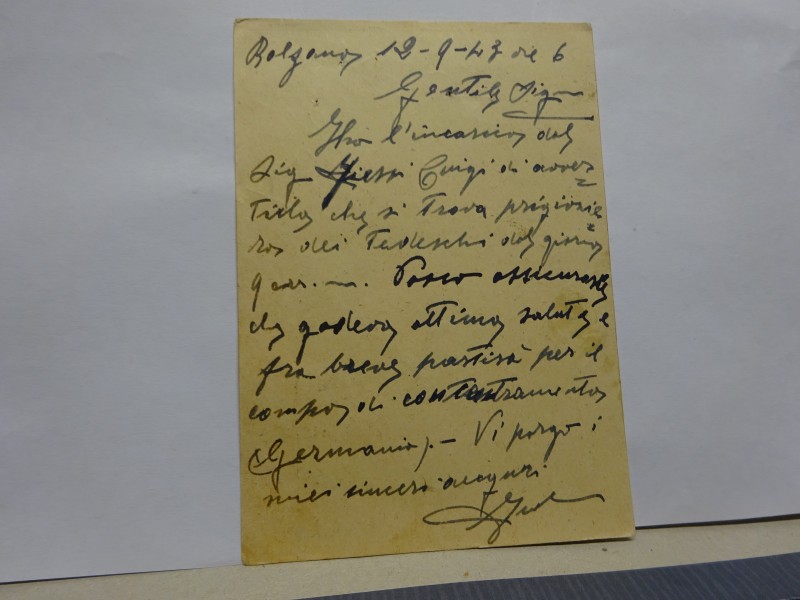 Bolzano, 12-9-43 ore 6
Gentile Sig.
Ho l'incarico del
Sig. Luigi di avver=
tirla che si trova prigionie=
ro dei Tedeschi dal giorno
9 corr. m. Posso assicurarle
che godeva ottima salute e
fra breve partirà per il
campo di concentramento
(Germania).- Vi porgo i
miei sinceri auguri